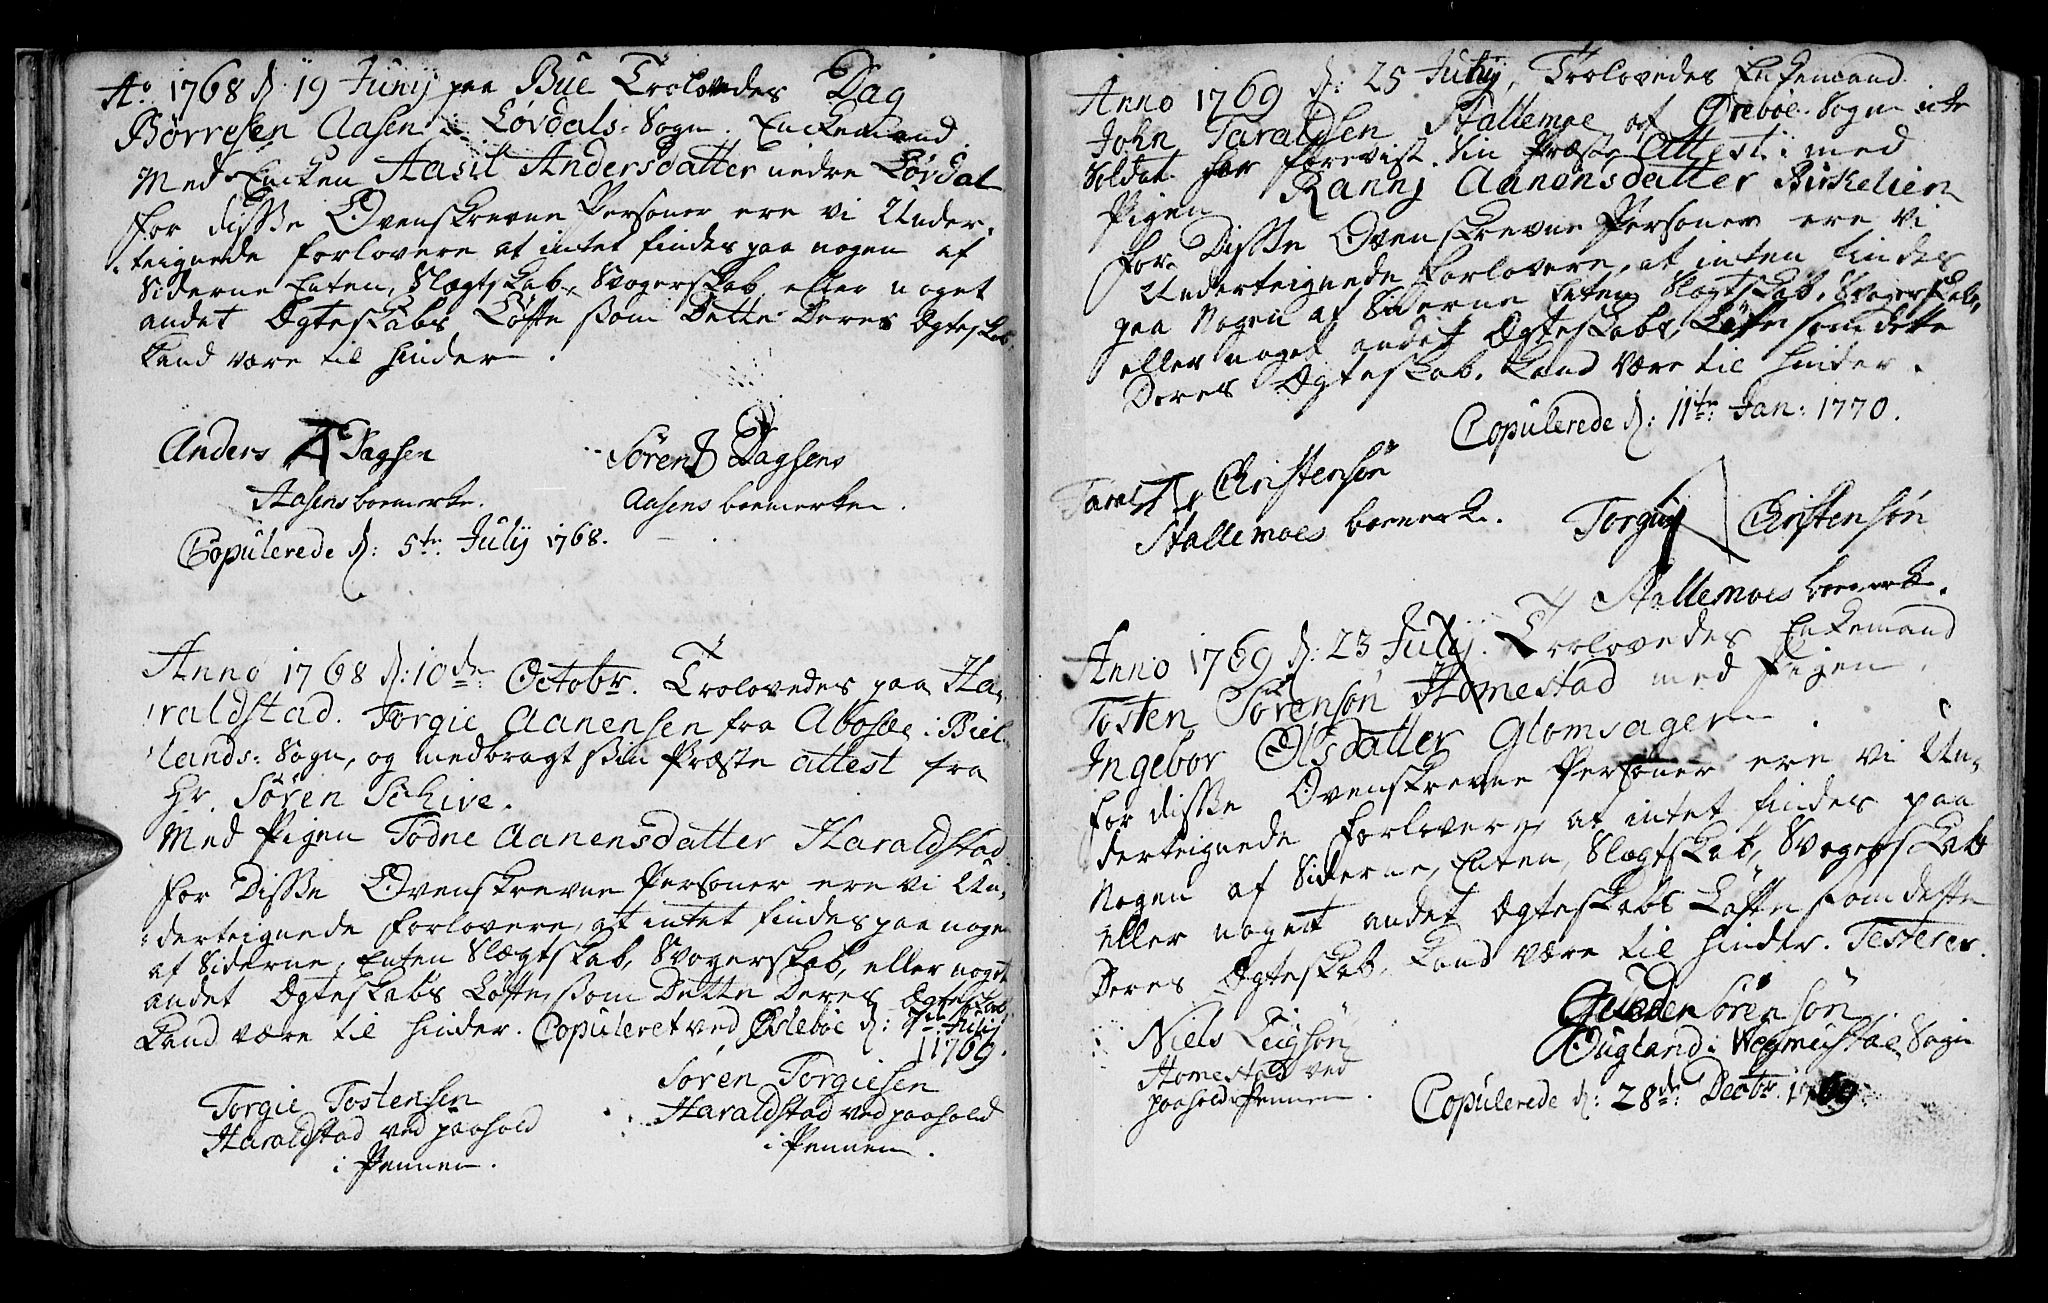 Aº. 1768 d. 19 Junij paa Bue Trolovedes Dag
Børresen Aasen i Løvdals-Sogn. Enckemand
Med Encken Aasil Andersdatter nedre Løvdal
for disse Ovenskrevne Personer ere vi Under-
teignede forlovere at intet findes paa nogen af
Siderne Enten, Slægtskab, Svogerskab eller noget
andet Ægteskabs Løfte som Dette Deres Ægteskab
kand være til hinder.
Anders Dagsen
Aasens boemerke.
Søren Dagsens
Aasens boemerke.
Copulerede d: 5te July 1768.
Anno 1768 d: 10de Octobr. Trolovedes paa Ha-
raldstad. Torgie Aanensen fra Abosde i Biel-
lands-Sogn, og medbragt sin Præste attest fra
Hr. Søren Schive.
Med Pigen Todne Aanensdatter Haraldstad
for Disse Ovenskrevne Personer ere vi Un-
derteignede forlovere, at intet findes paa nogen
af Siderne, Enten Slægtskab, Svogerskab, eller noget
andet Ægteskabs Løfte som Dette Deres Ægteskab
kand være til hinder. Copuleret ved Øslebøe d: 7de Julij
1769.
Torgie Tostensen
Haraldstad ved paahold
i Pennen.
Søren Torgiesen
Haraldstad ved paahold
i Pennen.
Anno 1769 d: 25 July, Trolovedes Enkemand
John Taraldsen Stallemoe af Ørebøe-Sogn
Soldat har forevist Sin Præste Attest i med
Pigen Rannj Aanensdatter Birkelien
for Disse Ovenskrevne Personer ere vi
Underteignede forlovere, at inten findes
paa Nogen af Siderne Enten Slægtskab, Svogerskab,
eller noget andet Ægteskabs Løfte som dette
Deres Ægteskab, kand være til hinder.
Copulerede d: 11te Jan: 1770.
Taral Christensøn
Stallemoes boemerke.
Torgiuj Christensøn
Stallemoes boemerke.
Anno 1769 d: 23 July. Trolovedes Enkemand
Tosten Sørensøn Homestad med Pigen
Ingebor Olsdatter Glomsager
for disse Ovenskrevne Personer ere vi Un-
derteignede forlovere, at intet findes paa
Nogen af Siderne, Enten, Slægtskab, Svogerskab
eller noget andet Ægteskabs Løfte som dette
Deres Ægteskab, kand være til hinder. Testerer
Niels Leigsøn
Homestad ved
paahold i Pennen.
Gunden Sørensøn
Ougland i Wegmustae Sogn
Copulerede d: 28de Decbr. 1769